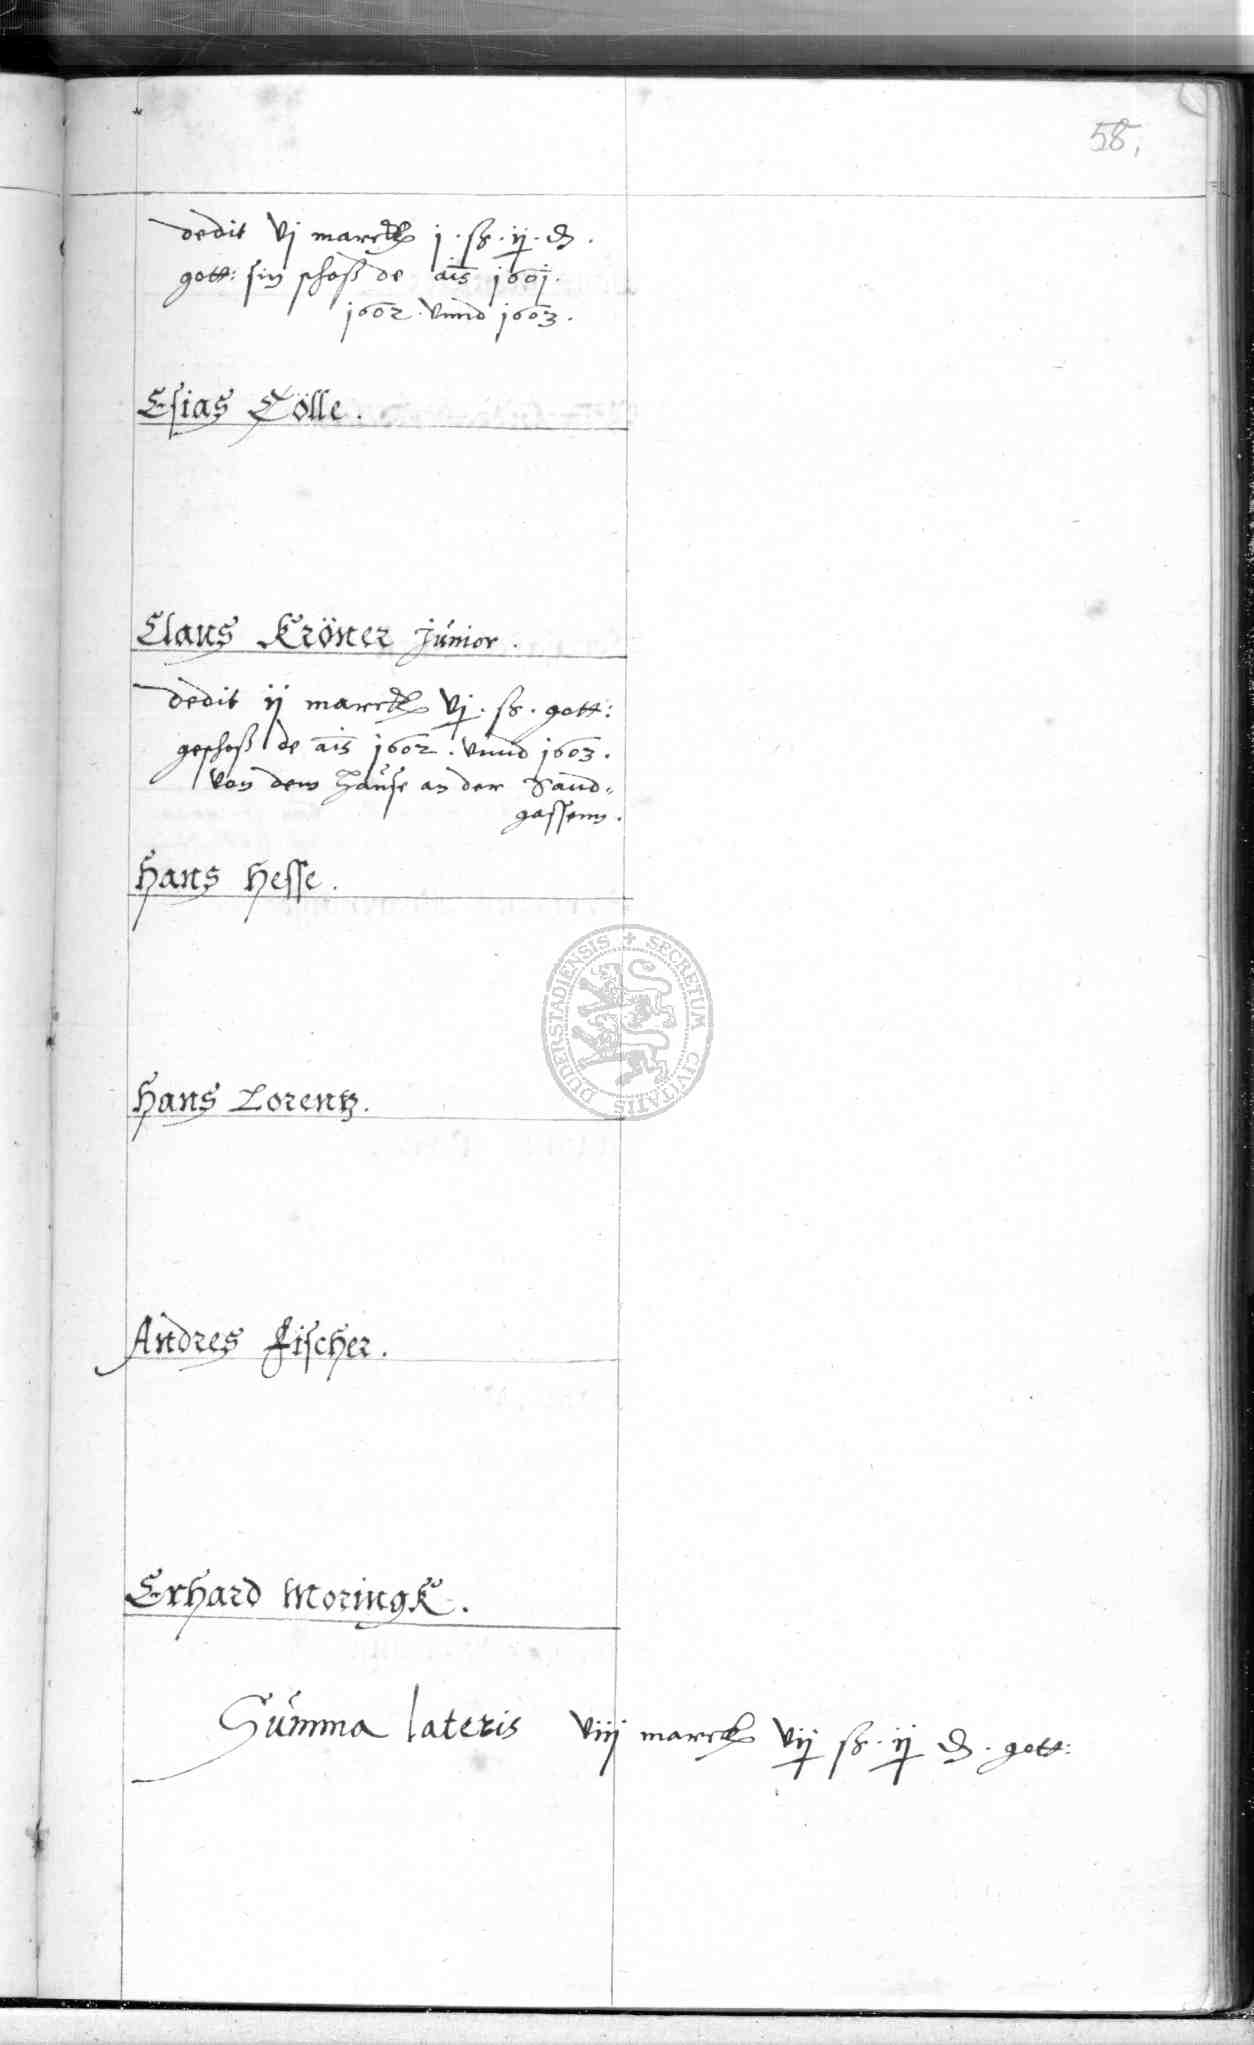 58.
dedit vj marck j. ß. ij. ₰.
gott: sin schoß de ais 1601.
1602. vnnd 1603.
Esias Cölle.
Claus Kröner junior.
dedit ij marck vj. ß. gott:
geschoß de ais 1602. vnnd 1603.
von dem Hause an der Sand-
gassenn.
Hans Hesse.
DUDERSTADIENSIS + SECRETUM CIVITATIS
Hans Lorentz.
Andres Fischer.
Erhard Moringk.
Summa lateris viij marck vij ß. ij ₰. gott: